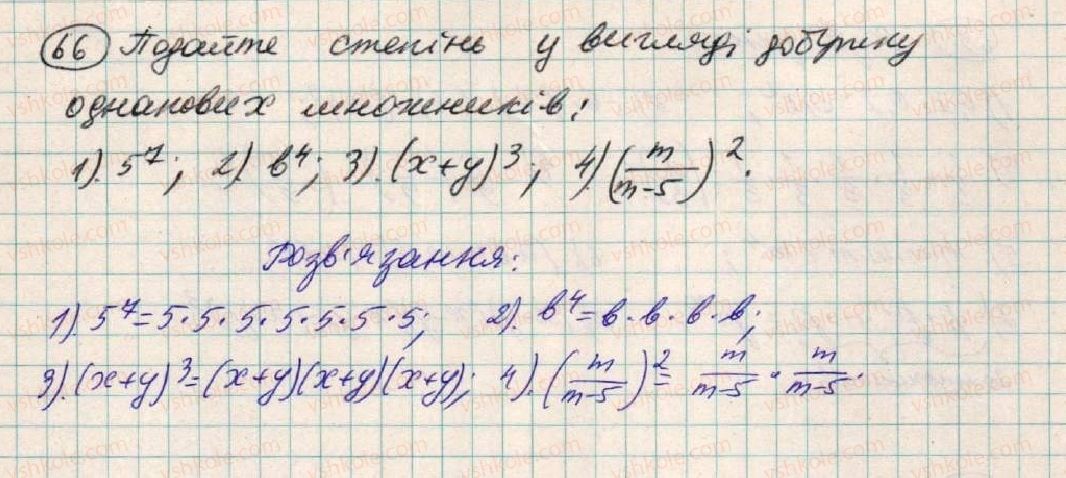 66 Подайте степінь у вигляді добутку
однакових множників:
1). 5⁷; 2). b⁴; 3). (x+y)³; 4). (m/(m-5))².
Розв'язання:
1). 5⁷=5·5·5·5·5·5·5; 2). b⁴=b·b·b·b;
3). (x+y)³=(x+y)(x+y)(x+y); 4). (m/(m-5))²= m/(m-5) · m/(m-5).